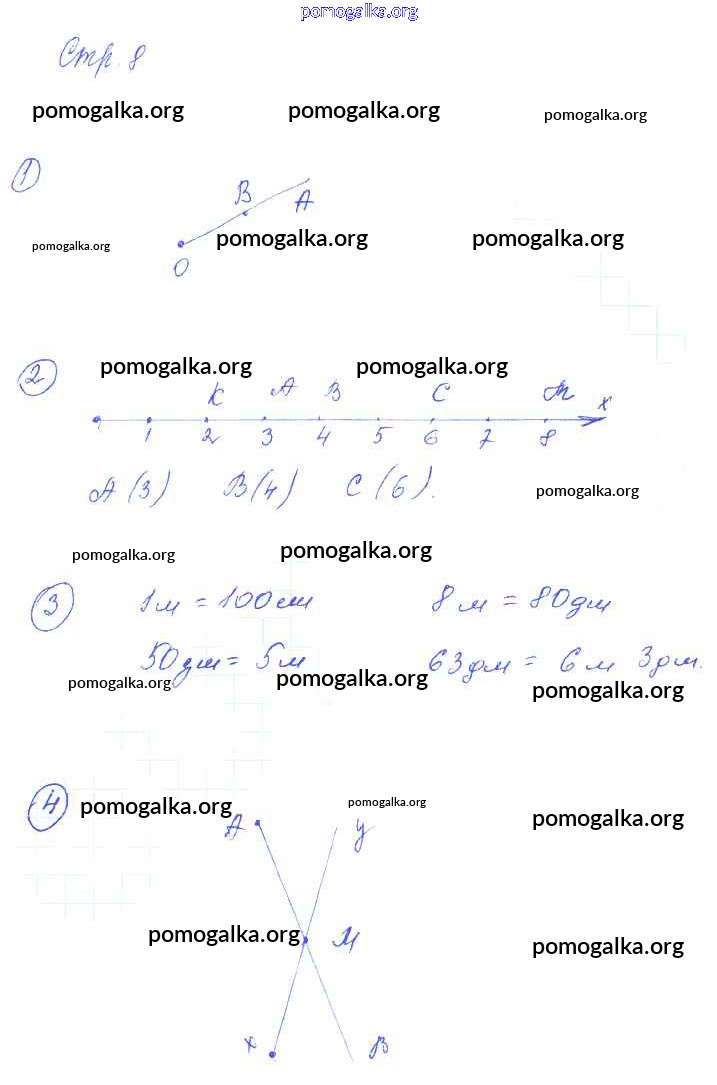 pomogalka.org
Стр. 8
pomogalka.org pomogalka.org pomogalka.org
1
B A
O
pomogalka.org pomogalka.org pomogalka.org
2
pomogalka.org pomogalka.org
K A B C M x
1 2 3 4 5 6 7 8
A (3) B (4) C (6).
pomogalka.org
pomogalka.org pomogalka.org
3 1 м = 100 см 8 м = 80 дм
50 дм = 5 м 63 дм = 6 м 3 дм.
pomogalka.org pomogalka.org pomogalka.org
4 pomogalka.org pomogalka.org pomogalka.org
A y
pomogalka.org M pomogalka.org
x B